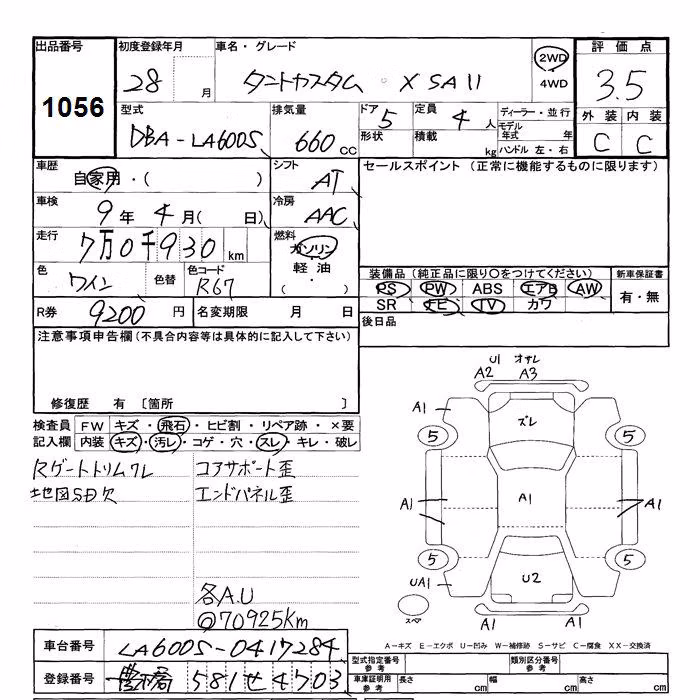 出品番号 初度登録年月 車名・グレード 評価点
1056 28 月 タントカスタム X SAII 2WD 4WD 3.5
型式 排気量 ドア 5 定員 4 人 ディーラー・並行 外装 内装
DBA-LA600S 660 cc 形状 積載 kg モデル年式 年 ハンドル 左・右 C C
車歴 自家用・( ) シフト AT セールスポイント (正常に機能するものに限ります)
車検 9年 4月( 日) 冷房 AAC
走行 7万0千930 km 燃料 ガソリン 軽油 ・( )
色 ワイン 色替 色コード R67 装備品 (純正品に限り○をつけてください) 新車保証書
PS PW ABS エアB AW 有・無
SR ナビ TV カワ
R券 9200 円 名変期限 月 日 後日品
注意事項申告欄 (不具合内容等は具体的に記入して下さい)
修復歴 有 〔箇所 〕
検査員記入欄 FW キズ・飛石・ヒビ割・リペア跡・×要
内装 キズ・汚レ・コゲ・穴・スレ・キレ・破レ
Rゲートトリムワレ コアサポート歪
地図SD欠 エンドパネル歪
各A.U
@70925km
U1 オサレ
A2 A3
A1 ズレ
5 5
A1 A1 A1
5 5
UA1 U2
スペア
A1 A1
A-キズ E-エクボ U-凹み W-補修跡 S-サビ C-腐食 XX-交換済
車台番号 LA600S-0417284 型式指定番号 参考 類別区分番号 参考
登録番号 581 せ 4703 車庫証明用 参考 長さ cm 幅 cm 高さ cm